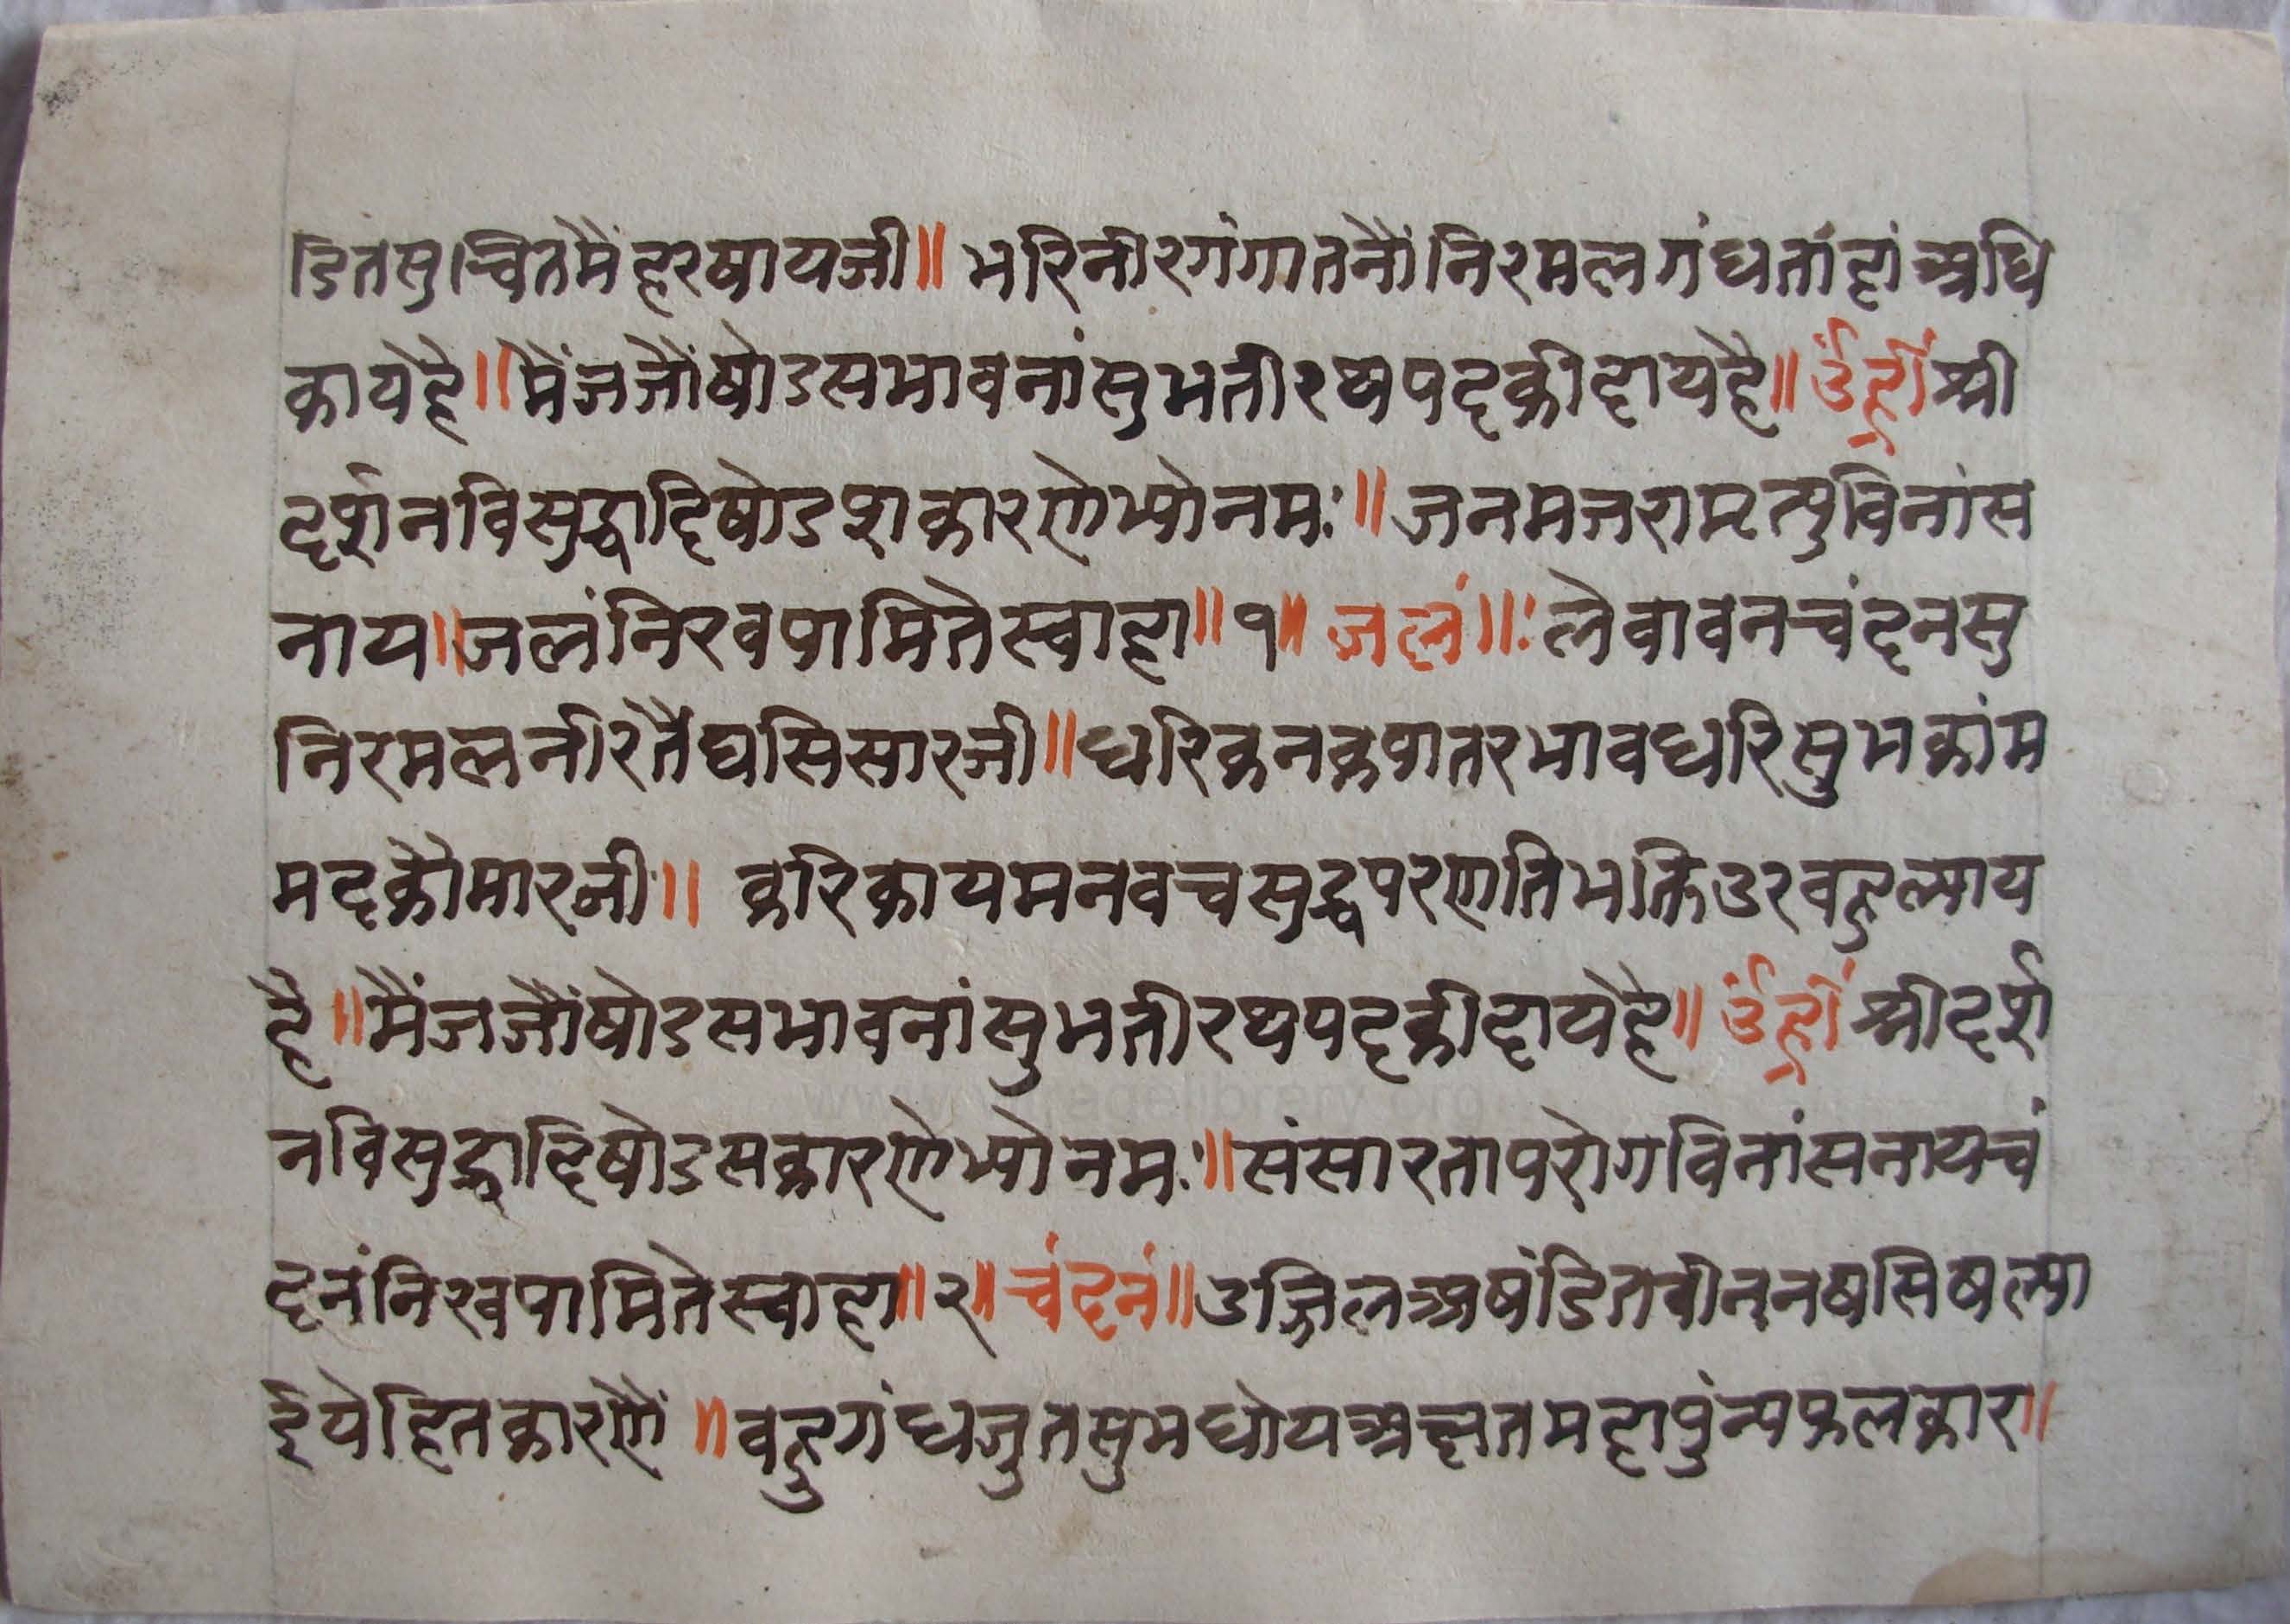 डितसुचितमैंहरषायजी॥ भरिनीरगंगातनौंनिरमलगंधतांहांअधि
कायेहै॥मैंजजौंषोडसभावनांसुभतीरथपदकीदायहै॥ ॐह्रींश्री
दर्शनविसुद्धादिषोडशकारणेभ्योनमः॥जनमजरामृत्युविनांस
नाय॥जलंनिरवपामितेस्वाहा॥१॥ जलं॥ः लेवावनचंदनसु
निरमलनीरतैंघसिसारजी॥धरिकनकपातरभावधरिसुभकांम
मदकौमारनी॥ करिकायमनवचसुद्धपरणतिभक्तिउरवहुल्याय
है॥मैंजजौंषोडसभावनांसुभतीरथपदकीदायेहै॥ ॐह्रीं श्रीदर्श
नविसुद्धादिषोडसकारणेभ्योनमः॥संसारतापरोगविनांसनायचं
दनंनिरवपामितेस्वाहा॥२॥ चंदनं॥उज्जिलअषंडितवीनंनषसिषल्या
ईयेहितकारणैं॥वहुगंधजुतसुभधोयअक्षतमहापुंन्यफलकार॥
www. .org